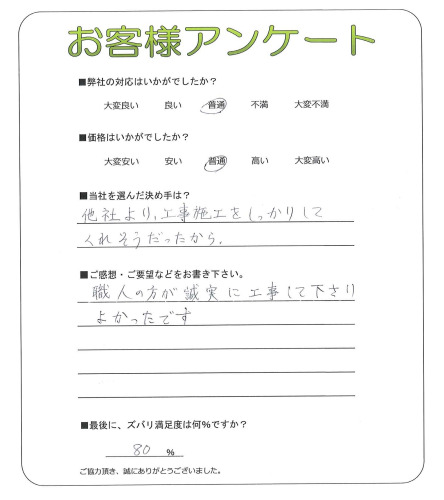 お客様アンケート
■弊社の対応はいかがでしたか?
大変良い 良い 普通 不満 大変不満
■価格はいかがでしたか?
大変安い 安い 普通 高い 大変高い
■当社を選んだ決め手は?
他社より,工事施工をしっかりして
くれそうだったから,
■ご感想・ご要望などをお書き下さい。
職人の方が誠実に工事して下さり
よかったです
■最後に、ズバリ満足度は何%ですか?
80 %
ご協力頂き、誠にありがとうございました。